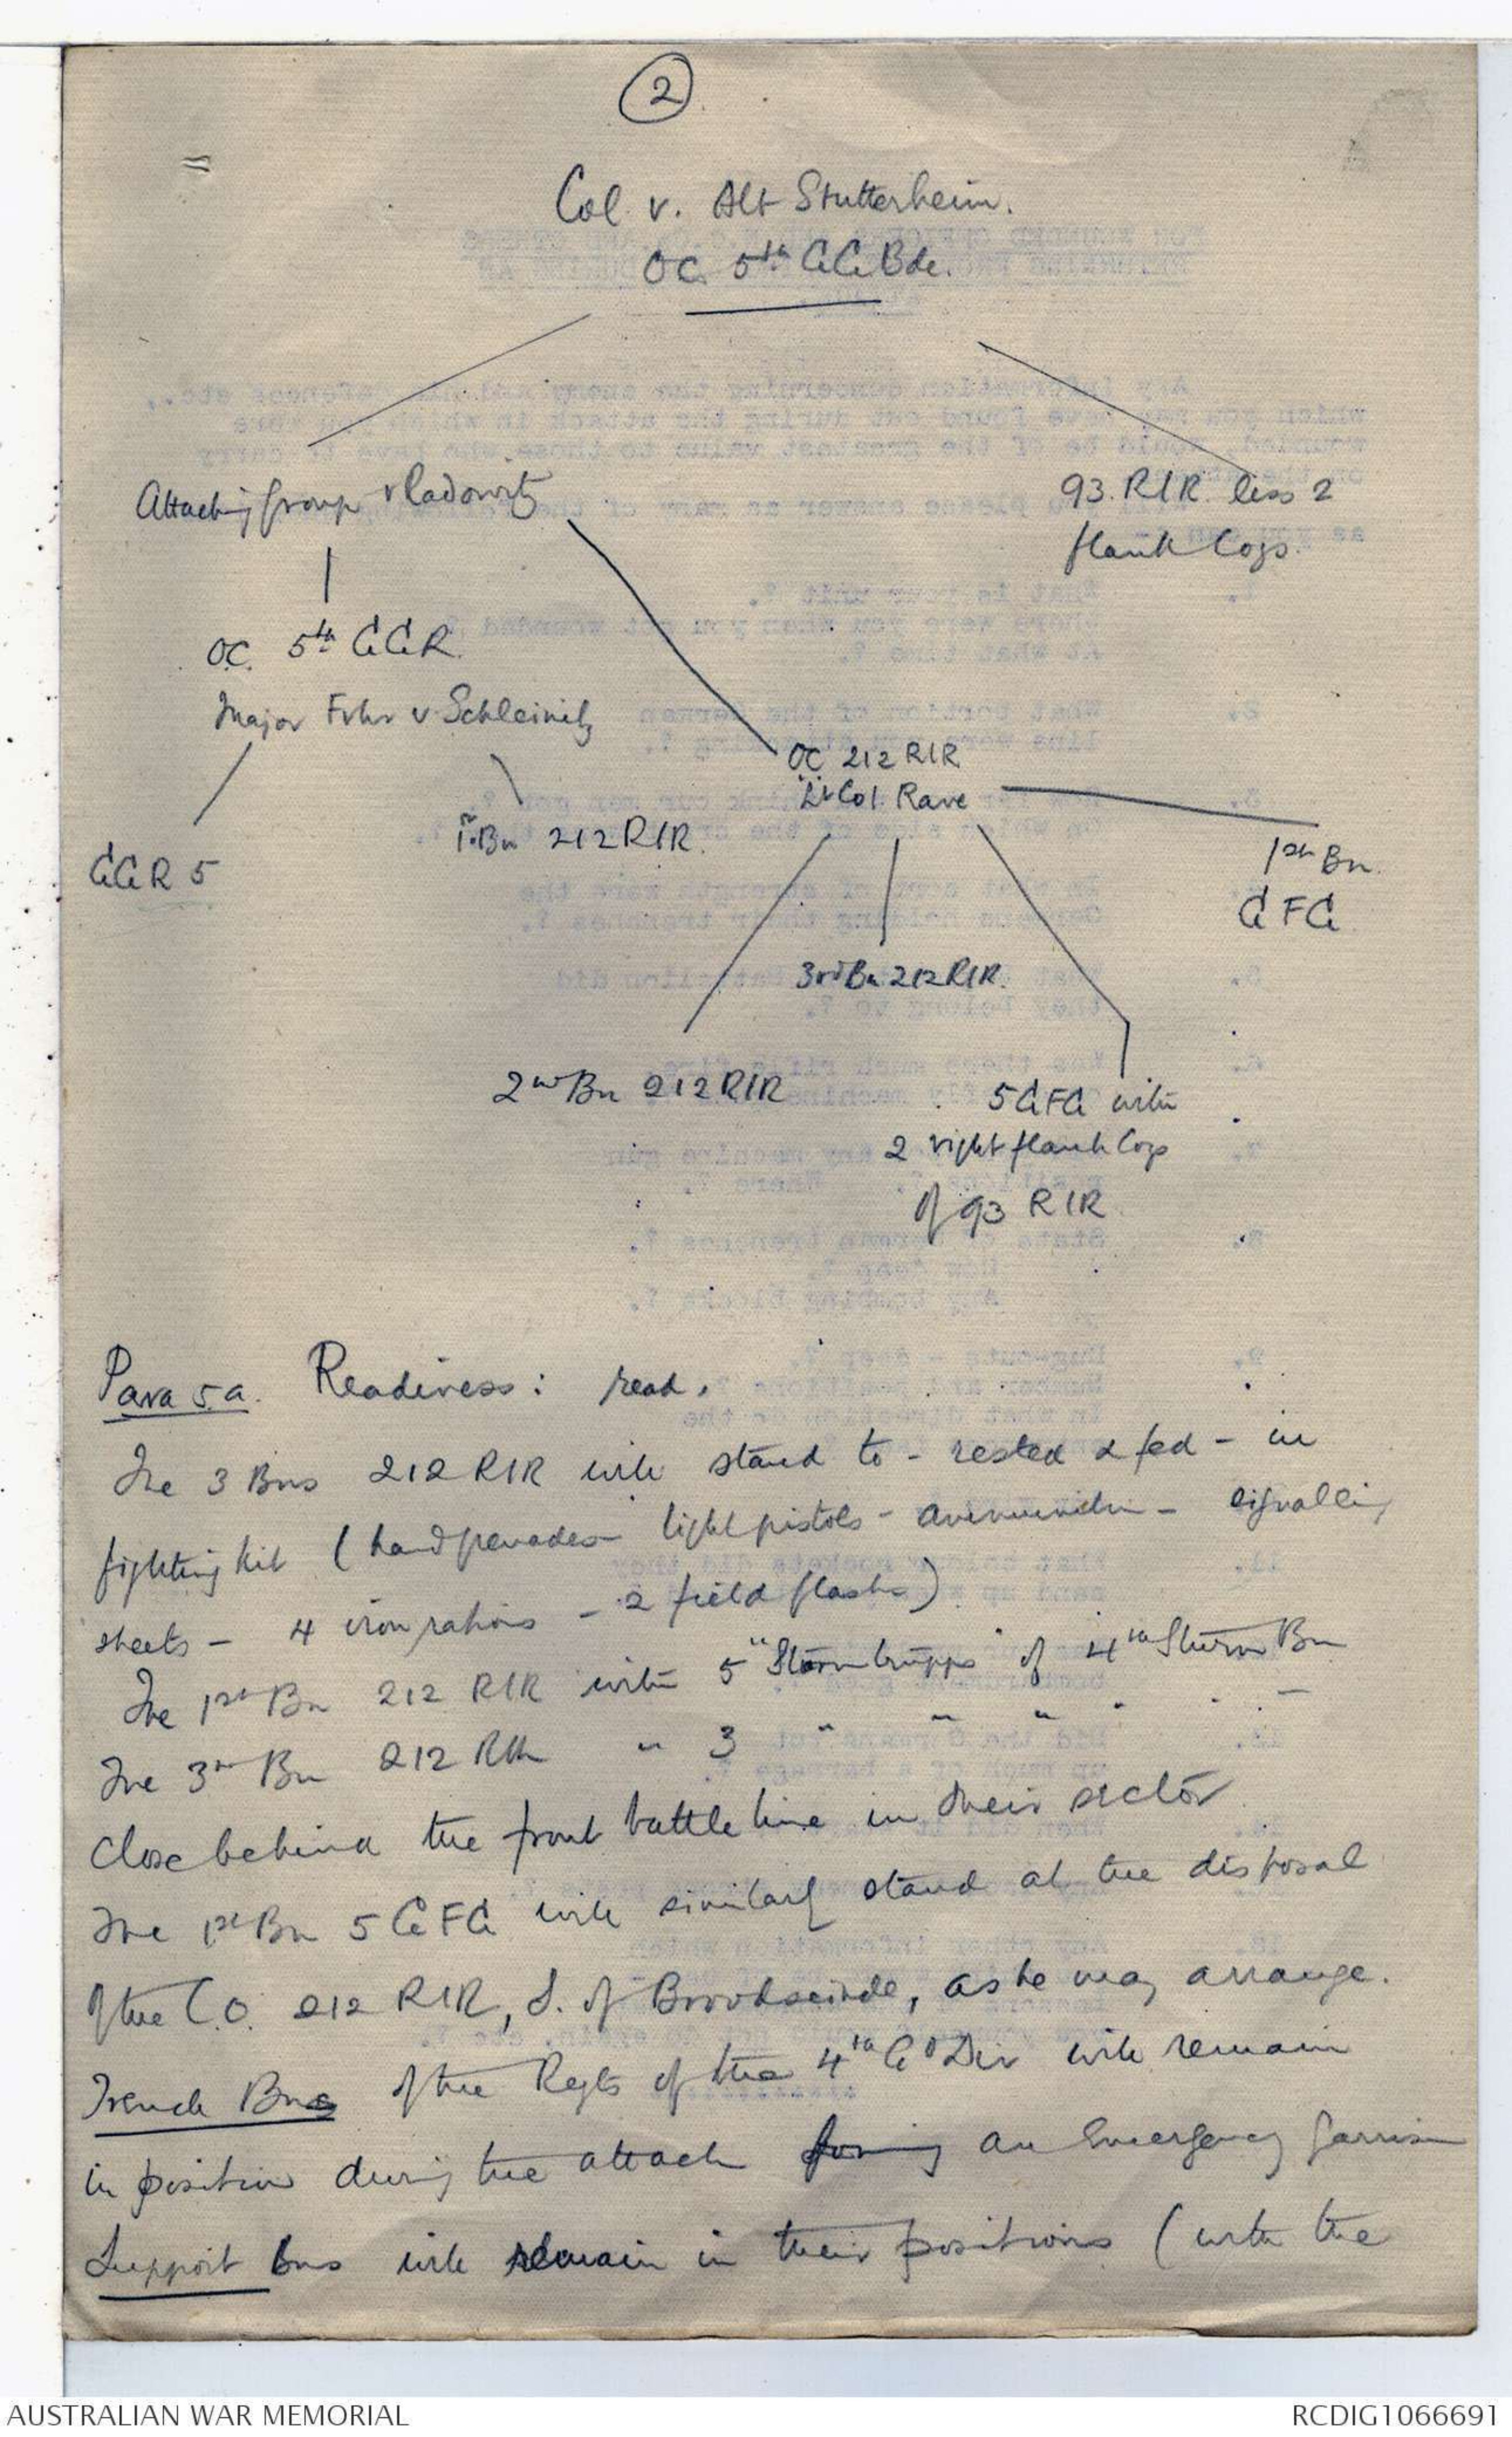 2
Col v. Alt Stutterheim.
OC. 5th GG Bde.
Attacking Group v Radowitz
93. RIR. less 2
flank Coys.
OC. 5th GGR.
Major Frhr v Schleinitz
OC 212 RIR
Lt Col. Rave
1st Bn 212 RIR.
GGR 5
1st Bn.
GFG
3rd Bn 212 RIR.
2nd Bn 212 RIR
5 GFG with
2 right flank Coys
of 93 RIR
Para 5.a. Readiness: read.
The 3 Bns 212 RIR will stand to - rested & fed - in
fighting kit (hand grenades - light pistols - ammunition - signalling
sheets - 4 iron rations - 2 field flasks).
The 1st Bn 212 RIR with 5 "Sturmtrupps" of 4th Sturm Bn
The 3rd Bn 212 RIR " 3 " " " " " -
close behind the front battle line in their sector
The 1st Bn 5 GFG will similarly stand at the disposal
of the C.O. 212 RIR, S. of Broodseinde, as he may arrange.
Trench Bns of the Regts of the 4th Gd Div will remain
in position during the attack forming an emergency garrison
Support bns will remain in their positions (with the
AUSTRALIAN WAR MEMORIAL
RCDIG1066691